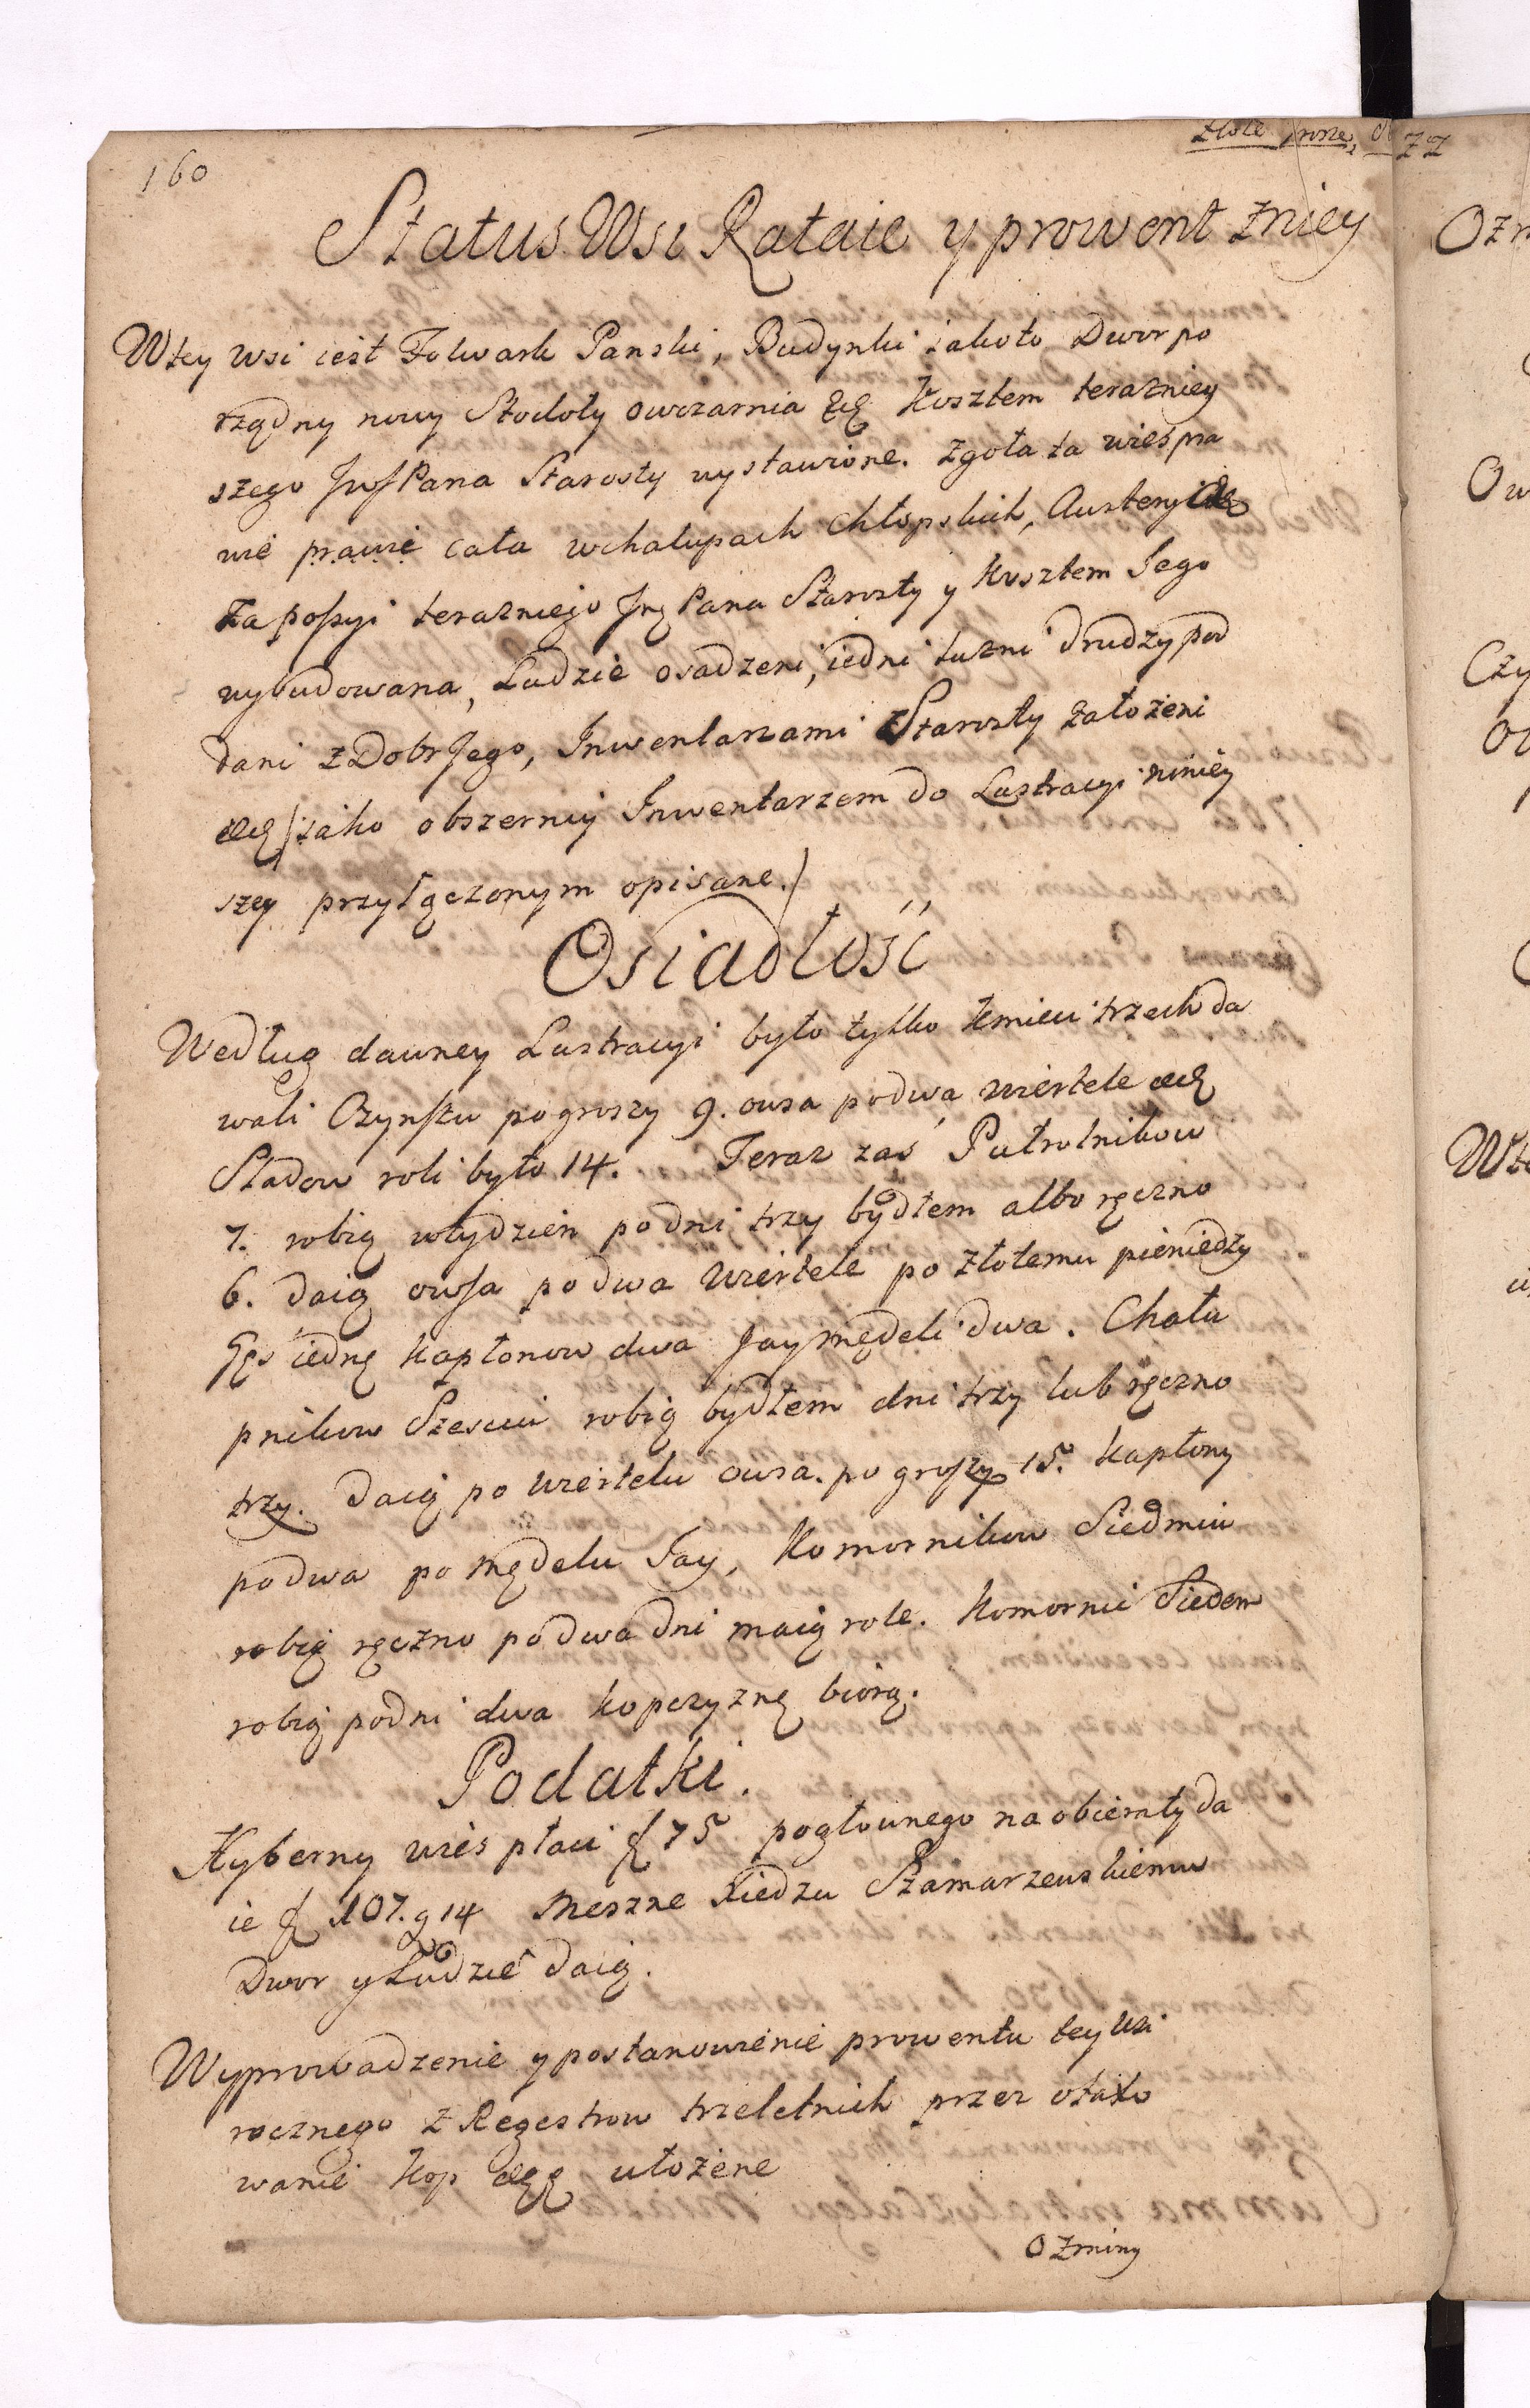 160
złote grosze
Status Wsi Rataie y prowent zniey
Wtey wsi iest Folwark Panski, Budynki iakoto Dwor po
rządny nowy Stodoły owczarnia &c Kosztem terazniey
szego Pana Starosty wystawione. Zgoła ta wieś pra
wie prawie cała wchałupach Chłopskich, Austeryi
Za possyi terazniejego Pana Starosty y Kosztem Jego
wybudowana, Ludzie osadzeni, iedni luzni drudzy pod
dani z Dobr Jego, Inwentarzami Starosty założeni
&c /iako obszerniy Inwentarzem do Lustracyi niniey
szey przyłączonym opisane./
Osiadłość
Według dawney Lustracyi było tylko kmieci trzech da
wali Czynszu pogroszy 9. owsa podwa wiertele &c
Sladow roli było 14. Teraz zaś Pułrolnikow
7. robią wtydzień podni trzy bydłem albo ręczno
6. daią owsa podwa wiertele po złotemu pieniedzy
Gęś iednę kapłonow dwa Jay mędeli dwa. Chału
pnikow Szesciu robią bydłem dni trzy lub ręczno
trzy. daią po wiertelu owsa. po groszy 15. kapłony
podwa po mędelu Jay, Komornikow Siedmiu
robią ręczno podwa dni maią role. Komornic Siedem
robią podni dwa kopczyznę biorą.
Podatki.
Hyberny wieś płaci f 75 pogłownego na obiemtyda
ie f 107. g 14 Meszne Xiedzu Szamarzewskiemu
Dwor y Ludzie daią.
Wyprowadzenie y postanowienie prowentu tey wsi
rocznego z Regestrow trzeletnich przez otaxo
wanie kop &c ułożene
Ozminy